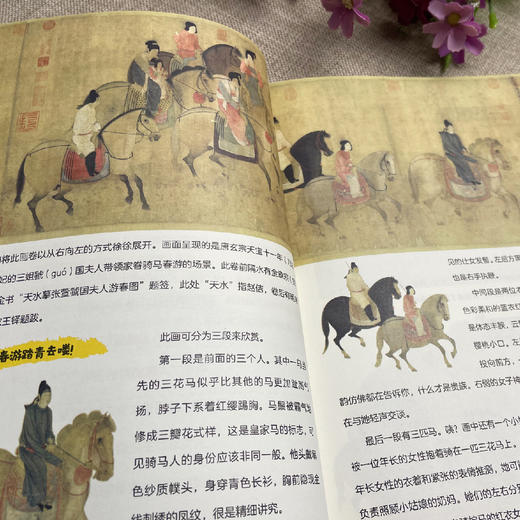 将此画卷以从右向左的方式徐徐展开。画面呈现的是唐玄宗天宝十一年（
妃的三姐虢（guó）国夫人带领家眷骑马春游的场景。此卷前隔水有金章宗
金书“天水摹张萱虢国夫人游春图”题签，此处“天水”指赵佶，卷后有
王铎题跋。
春游踏青去喽！
此画可分为三段来欣赏。
第一段是前面的三个人。其中一
先的三花马似乎比其他的马更加
扬，脖子下系着红缨踢胸。马鬃被霸气
修成三瓣花式样，这是皇家马的标志，可
见骑马人的身份应该非同一般。他头
色纱质幞头，身穿青色长衫，胸前隐现金
线刺绣的凤纹，很是精细讲究。
见的仕女发髻。左后方
也是右手执鞭。
中间段是两位衣
色彩柔和的蓝衣红
是体态丰腴，云
樱桃小口。左
投向前方，
韵仿佛都在告诉你，什么才是贵族。右侧的女子
在与她轻声交谈。
最后一段有三匹马。咦？画中还有一个小
被一位年长的女性抱着骑在一匹三花马上。
年长女性的衣着和紧张的表情推测，她可
负责照顾小姑娘的奶妈。她们的左右分别
的红衣女